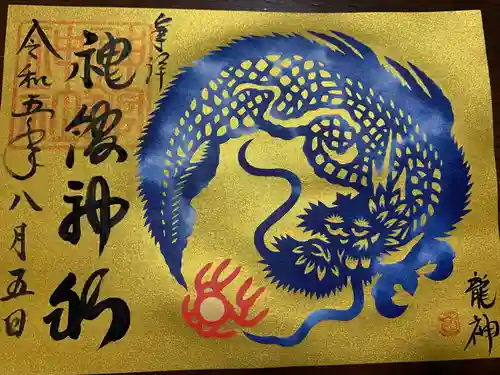 龍神
奉拝
蛇窪神社
令和五年八月五日